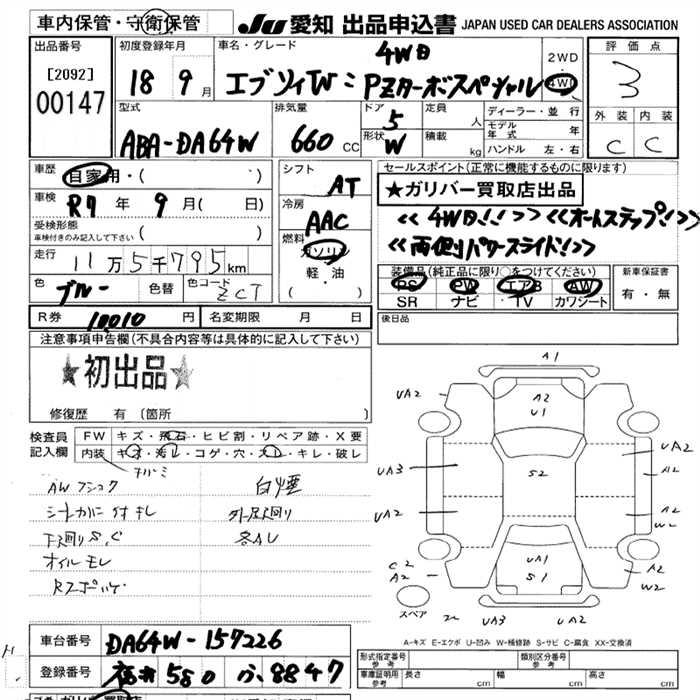 車内保管・守衛保管
JU 愛知 出品申込書 JAPAN USED CAR DEALERS ASSOCIATION
出品番号
[2092]
00147
初度登録年月
18 9月
車名・グレード
4WD
エブリィW PZターボスペシャル
2WD
4WD
評価点
3
外装 内装
C C
型式
ABA-DA64W
排気量
660 CC
ドア
5
形状
W
定員
人
積載
kg
ディーラー・並行
モデル年式 年
ハンドル 左・右
車歴
自家用・( )
車検
R7年 9月( 日)
受検形態
車検付きのみ記入して下さい ( )
走行
11万5千795km
色
ブルー
色替
色コード
ZCT
シフト
AT
冷房
AAC
燃料
ガソリン
軽・油
( )
セールスポイント(正常に機能するものに限ります)
★ガリバー買取店出品
<<4WD!!>> <<オートステップ!>>
<<両側パワースライド!>>
装備品(純正品に限り○をつけてください)
PS PW エアB AW
SR ナビ TV カワシート
新車保証書
有・無
R券 10010 円 名変期限 月 日
後日品
注意事項申告欄(不具合内容等は具体的に記入して下さい)
★初出品★
修復歴 有 〔箇所 〕
検査員記入欄
FW キズ・飛石・ヒビ割・リペア跡・X要
内装 キズ・汚レ・コゲ・穴・スレ・キレ・破レ
白煙
シートカバー付 キレ
下廻りS.C
オイルモレ
外廻り
各AL
A1
UA2
A2
U1
UA2
UA3
S2
A2
UA2
A2
W2
C2
A2
UA1
S1
A2
W2
スペア
UA2
A-キズ E-エクボ U-凹み W-補修跡 S-サビ C-腐食 XX-交換済
車台番号 DA64W-157226
登録番号 580 8847
形式指定番号
参考
類別区分番号
参考
車庫証明用
参考
長さ cm 幅 cm 高さ cm